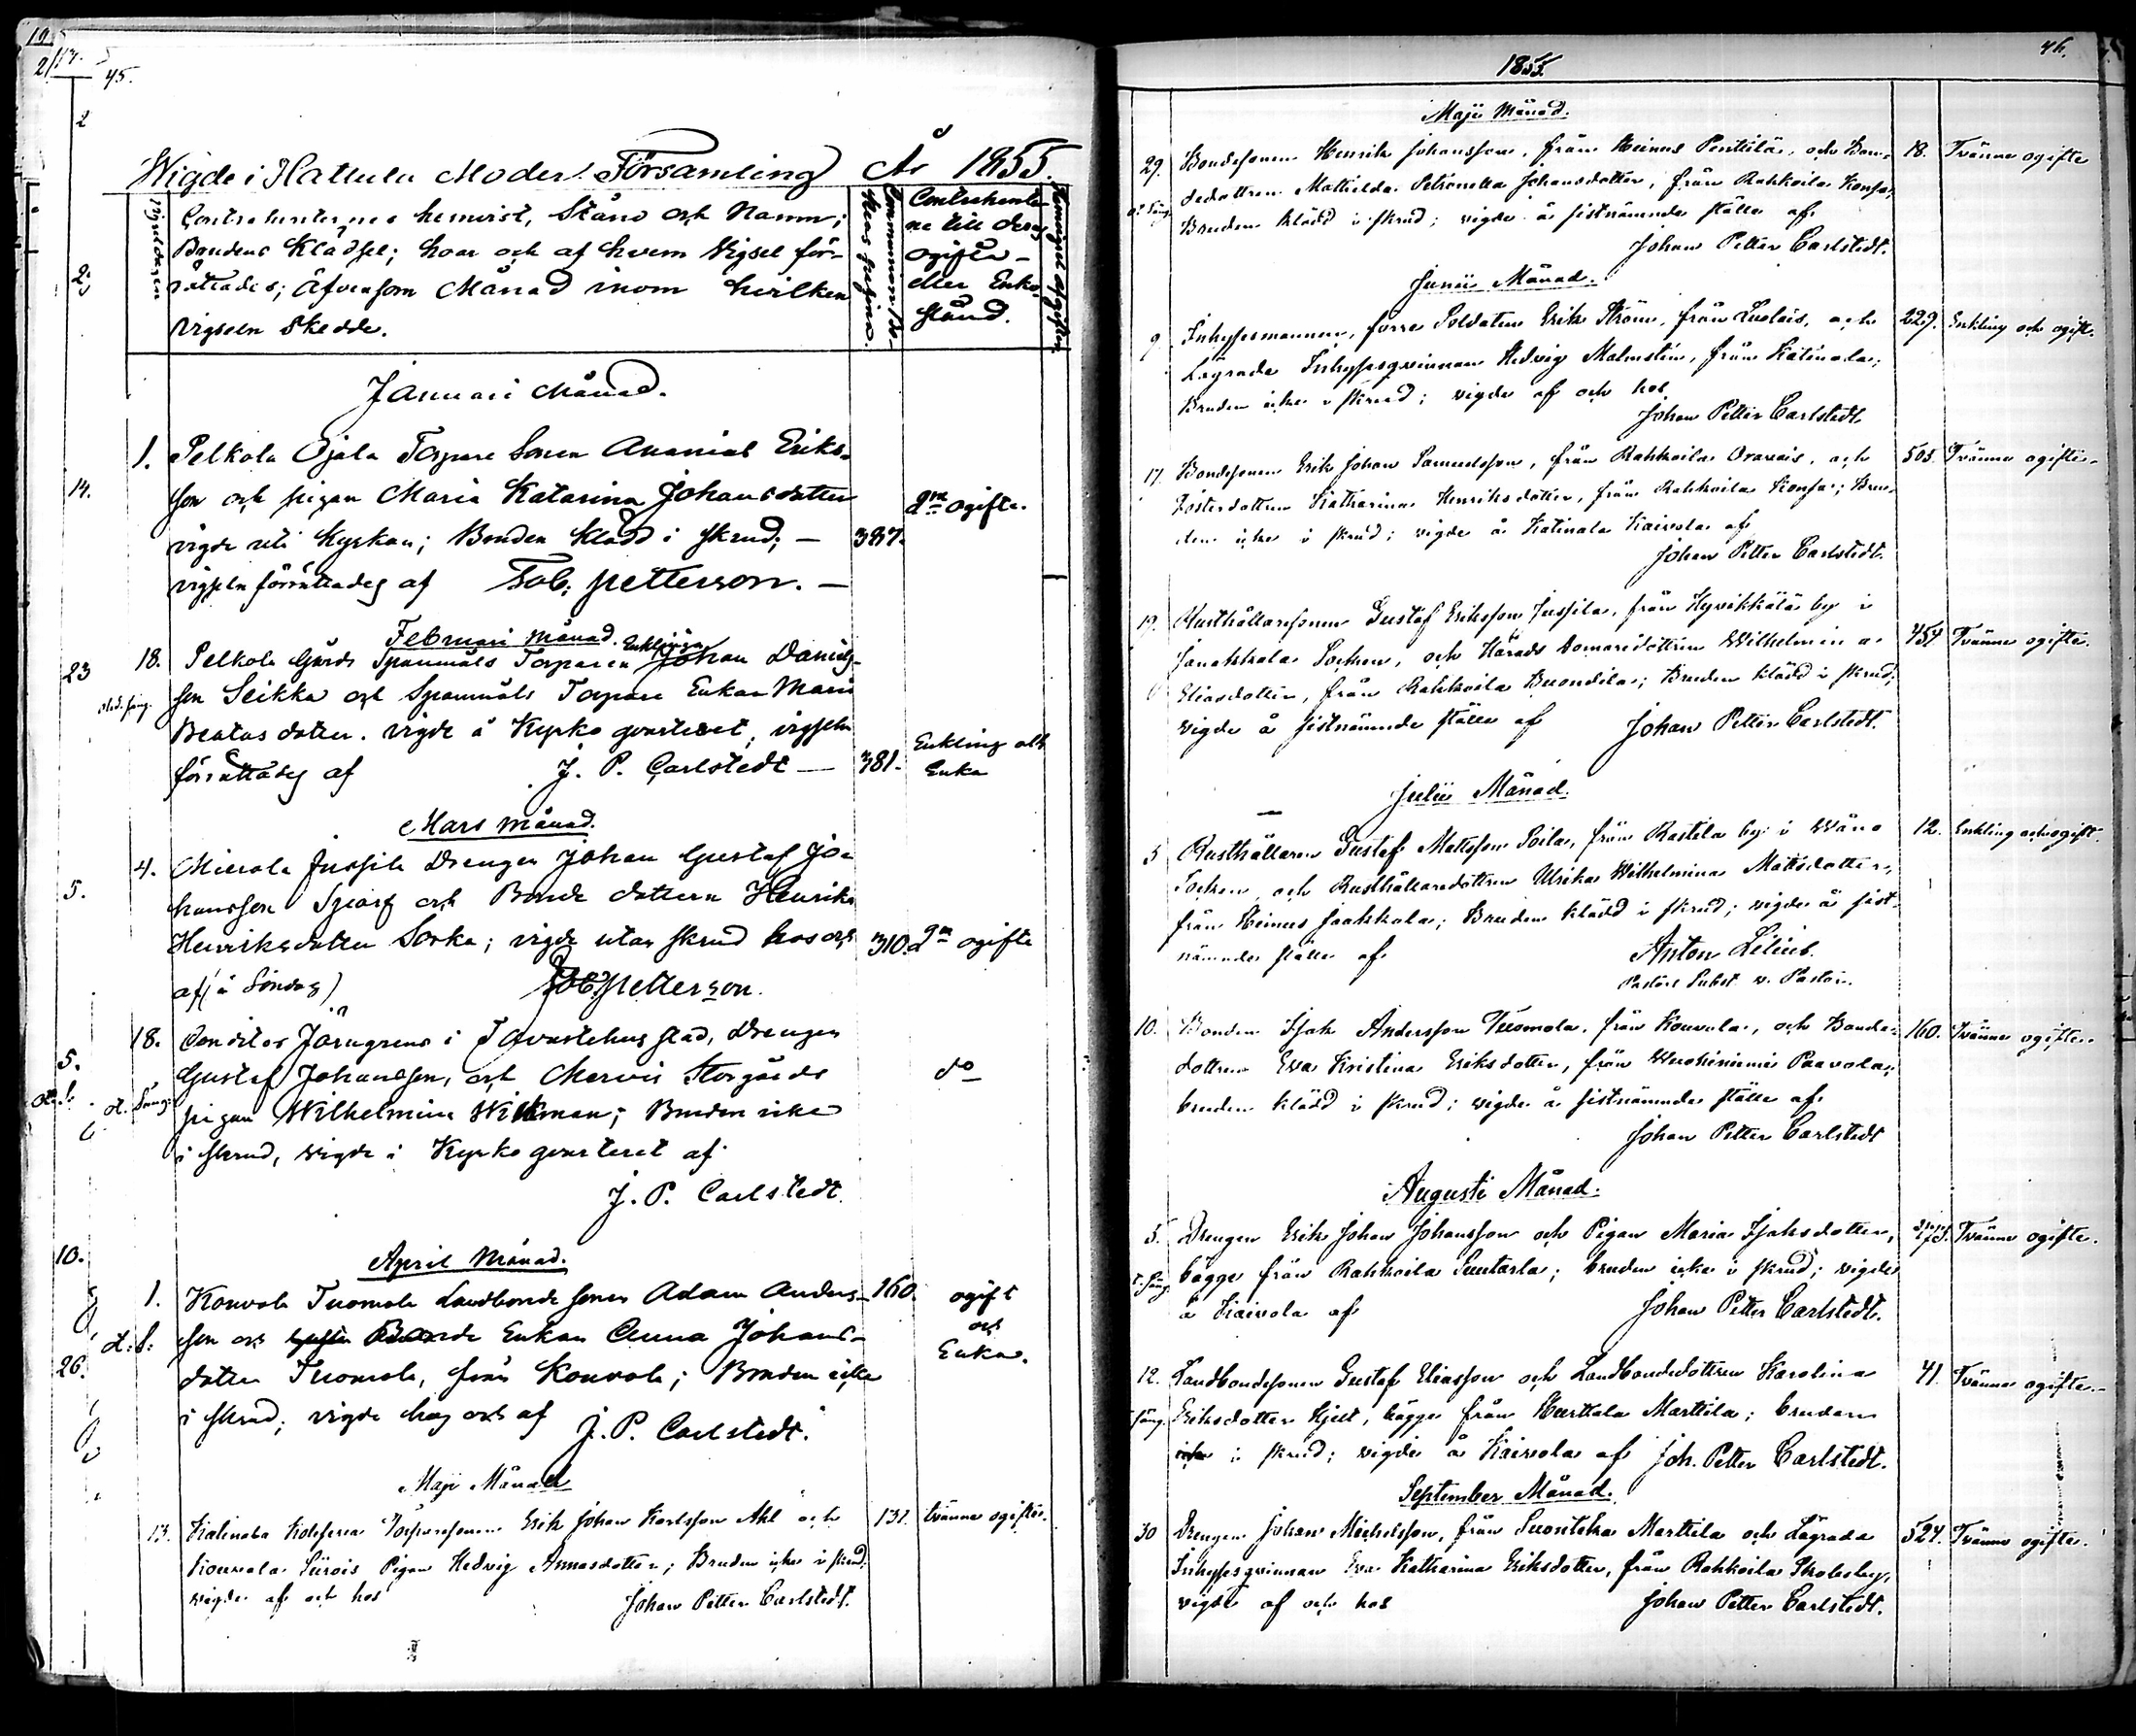 45.
Wigde i Hattula Moder Församling År 1855.
Vigseldagen
Contrahenternes hemvist, Stånd och Namn;
Brudens Klädsel; hvar och af hvem Vigsel för-
rättades; äfvensom Månad inom hvilken
Vigseln Skedde.
Communion-Bo-
kens pagina.
Contrahenter-
ne till deras
ogifta-
eller Enke-
stånd.
Januari Månad.
1. Pelkola Ojala Torpare Sonen Ananias Eriks-
son och pigan Maria Katarina Johansdotter
vigde uti Kyrkan; Bruden Klädd i skrud; — 387. 2ne ogifte.
vigseln förrättades af Tob. Petterson. —
Februari månad.
18. Pelkola Gårds Spannmåls Torparen Enklingen Johan Daniels-
son Seikka och Spannmåls Torpare Enkan Maria
Beatas dotter. vigde å Kyrko qvarteret, vigseln
förrättades af J. P. Carlstedt — 381. Enkling och
Enka
Mars månad.
4. Mierola Jussila Drengen Johan Gustaf Jo-
hansson och Bonde dottern Henrika
Henriksdotter Sorka; vigde utan skrud hos och 310. 2ne ogifte
af (å Söndag) Tob. Petterson.
18. Conditor Järngrens i Tavastehus stad, Drengen
Gustaf Johansson, och Mervis Storgårds do
pigan Wilhelmina Wikman; Bruden icke
i skrud, vigde i Kyrko qvarteret af
J. P. Carlstedt.
April Månad.
1. Kouvola Tuomola Landbonde sonen Adam Anders- 160. ogift
son och Bonde Enkan Anna Johans- och
dotter Tuomola, från Kouvola; Bruden icke Enka.
i skrud; vigde hos och af J. P. Carlstedt.
Maji Månad
13. Katinala Torparesonen Erik Johan Karlsson Ahl och 131. tvänne ogifte.
Kouvola Siirois Pigan Hedvig Annasdotter; Bruden icke i skrud;
vigde af och hos Johan Petter Carlstedt.
1855.
46.
Maji Månad.
29. Bondesonen Henrik Johansson, från Heinus Penttilä, och Bon- 18. Tvänne ogifte
dedottren Mathilda Petronella Johansdotter, från Rahkoila Konsa,
Bruden klädd i skrud; vigde å sistnämnde ställe af
Johan Petter Carlstedt.
Junii Månad.
9. Inhysesmannen, förre Soldaten Erik Ström, från Luolais, och 229. Enkling och ogift.
Lägrade Inhysesqvinnan Hedvig Malmsten, från Katinala;
Bruden icke i skrud; vigde af och hos
Johan Petter Carlstedt.
17. Bondesonen Erik Johan Samuelsson, från Rahkoila Oravais, och 505. Tvänne ogifte.
Fosterdottren Katharina Henriksdotter, från Rahkoila Konsa; Bru-
den icke i skrud; vigde å Katinala Kaivola af
Johan Petter Carlstedt.
19. Rusthållaresonen Gustaf Eriksson Jussila, från Hyvikkälä by i 454. Tvänne ogifte.
Janakkala Socken, och Härads domaredottren Wilhelmina
Eliasdotter, från Rahkoila Buondila; Bruden klädd i skrud;
vigde å sistnämnde ställe af Johan Petter Carlstedt.
Julii Månad.
5 Rusthållaren Gustaf Mattsson Soila, från Rastila by i Wånå 12. Enkling och ogift.
Socken, och Rusthållaredottren Ulrika Wilhelmina Mattsdotter,
från Heinus Jaakkola; Bruden klädd i skrud; vigde å sist-
nämnde ställe af Anton Lilius.
Pastors Subst. v. Pastor.
10. Bonden Isak Andersson Tuomola, från Kouvola, och Bonde- 160. Tvänne ogifte.
dottren Eva Kristina Eriksdotter, från Wuohiniemi Paavola,
bruden klädd i skrud; vigde å sistnämnde ställe af
Johan Petter Carlstedt
Augusti Månad.
5. Drengen Erik Johan Johansson och Pigan Maria Isaksdotter, Tvänne ogifte.
bägge från Rahkoila Suutarla; bruden icke i skrud; vigde
å Kaivola af Johan Petter Carlstedt.
12. Landbondesonen Gustaf Eliasson och Landbondedottren Karolina 41. Tvänne ogifte.
Eriksdotter Hjelt, bägge från Hurttala Marttila; bruden
i skrud; vigde å Kaivola af Joh. Petter Carlstedt.
September Månad.
30 Drengen Johan Michelsson, från Suontaka Marttila och Lägrada 524. Tvänne ogifte.
Inhysesqvinnan Eva Katharina Eriksdotter, från Rahkoila Skoleby,
vigde af och hos Johan Petter Carlstedt.